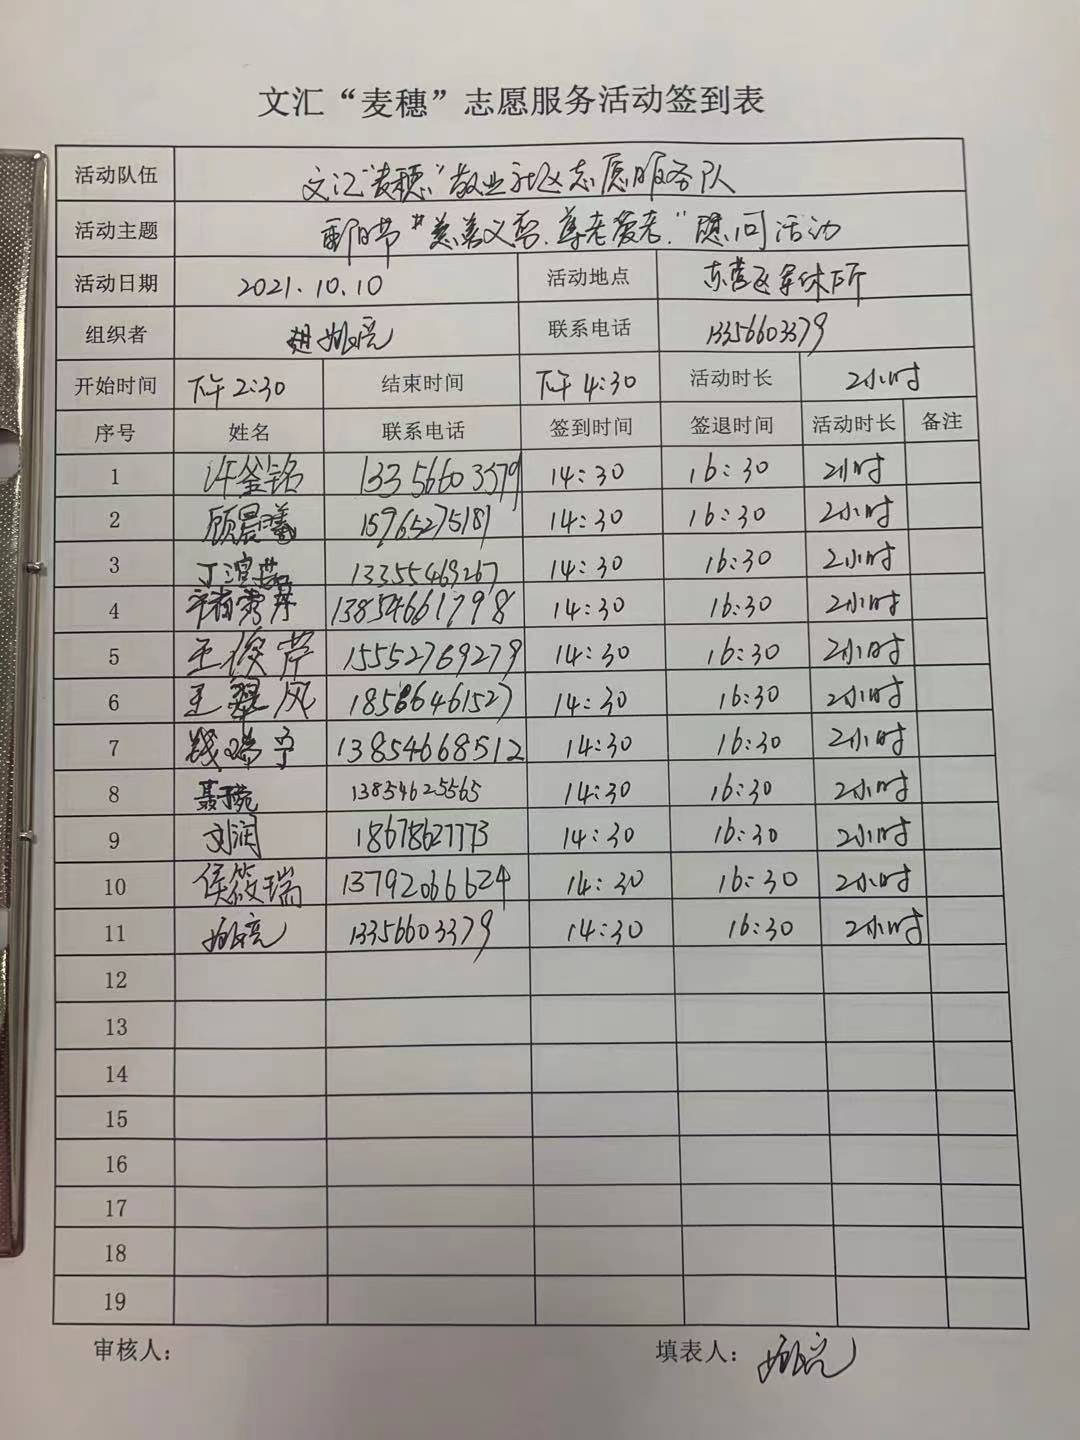 文汇“麦穗”志愿服务活动签到表
活动队伍 文汇“麦穗”敬业社区志愿服务队
活动主题 重阳节“慈善义剪、尊老爱老”慰问活动
活动日期 2021.10.10 活动地点 东营区军休所
组织者 姚亮 联系电话 13356603379
开始时间 下午2:30 结束时间 下午4:30 活动时长 2小时
序号 姓名 联系电话 签到时间 签退时间 活动时长 备注
1 许鉴铭 13356603379 14:30 16:30 2小时
2 顾晨曦 15965275181 14:30 16:30 2小时
3 丁 13355469267 14:30 16:30 2小时
4 13854661798 14:30 16:30 2小时
5 王俊芹 15552769279 14:30 16:30 2小时
6 王翠风 18586461527 14:30 16:30 2小时
7 钱瑞宁 13854668512 14:30 16:30 2小时
8 聂琬 13854625565 14:30 16:30 2小时
9 刘润 18678627773 14:30 16:30 2小时
10 侯筱瑞 13792066624 14:30 16:30 2小时
11 姚亮 13356603379 14:30 16:30 2小时
12
13
14
15
16
17
18
19
审核人： 填表人：姚亮